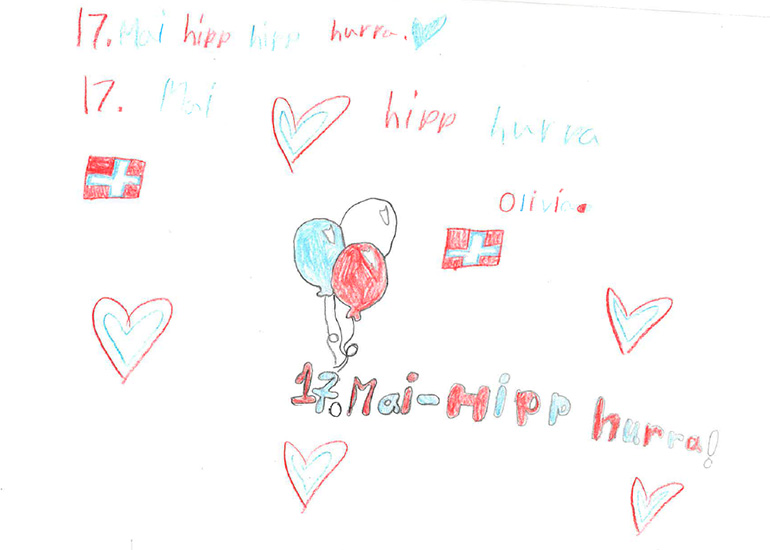 17. Mai hipp hipp hurra.
17. Mai hipp hurra
Olivia
17. Mai-Hipp hurra!